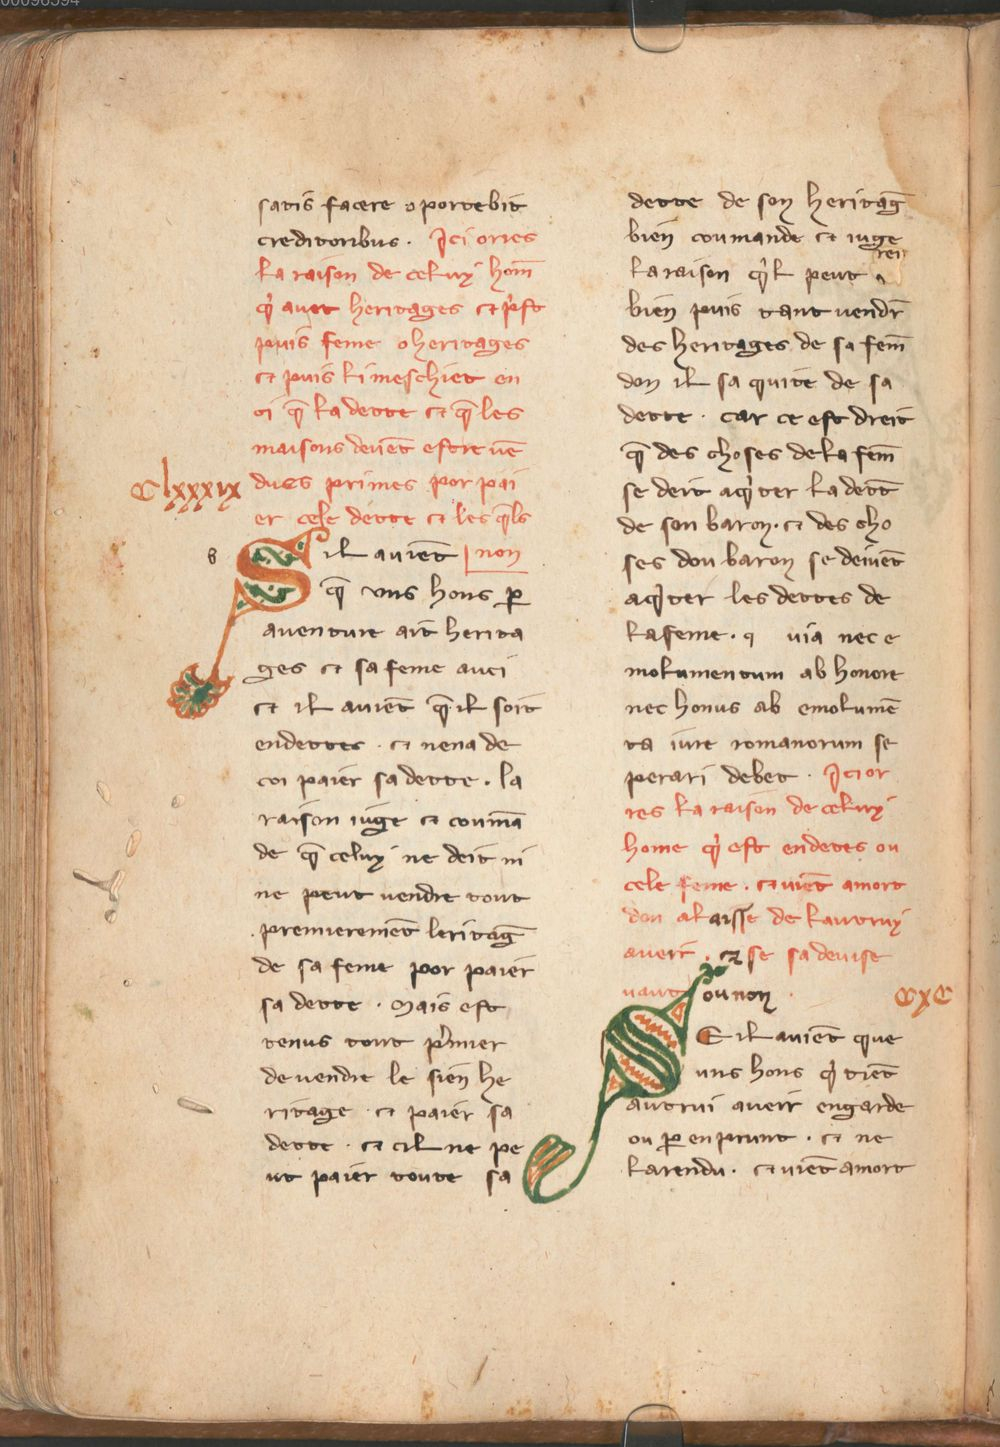 satis facere oportebit
creditoribus. Ici ories
la raison de celuy hom̄
q̓ auot heritages et p̓st
puis feme o heritages
et puis li meschiet en
oi q̄ la dette et q̄ les
maisons deuēt estre uē
Clxxxix
dues primes por pai
er cele dette et les q̄ls
non
Sil auiēt
q̄ vns hons ꝑ
auenture ait herita
ges et sa feme auci
et il auiēt q̄ il soit
endettes . et nena de
coi paier sa dette . la
raison iuge et coum̄a
de q̄ celuy ne deit ni
ne peut uendre tout
premieremēt leritaḡ
de sa feme por paier
sa dette . Mais est
tenus tout p̓mier
de uendre le sien he
ritage . et paier sa
dette . et cil ne pe
ut paier toute sa
dette de son heritaḡ
bien coumande et iuge
la raison q̓l peut
rei
bien puis tant uendr̄
des heritages de sa fem̄
don il sa quite de sa
dette . car ce est dreit
q̄ des choses de la fem̄
se deit aq̓ter la dett̄
de son baron . et des cho
ses dou baron se deiuēt
aq̓ter les dettes de
la feme . q uia nec e
molumentum ab honore
nec honus ab emolumē
ta iure romanorum se
perari debet . Ici or
res la raison de celuy
home q̓ est endetes ou
cele feme . et uiēt amort
dou alaisse de lautruy
aueir . et se sa deuise
uaut ou non .
CxC
Sil auiēt que
uns hons q̓ tiēt
autrui aueir engarde
ou ꝑ enprunt . et ne
la rendu . et uiēt amort